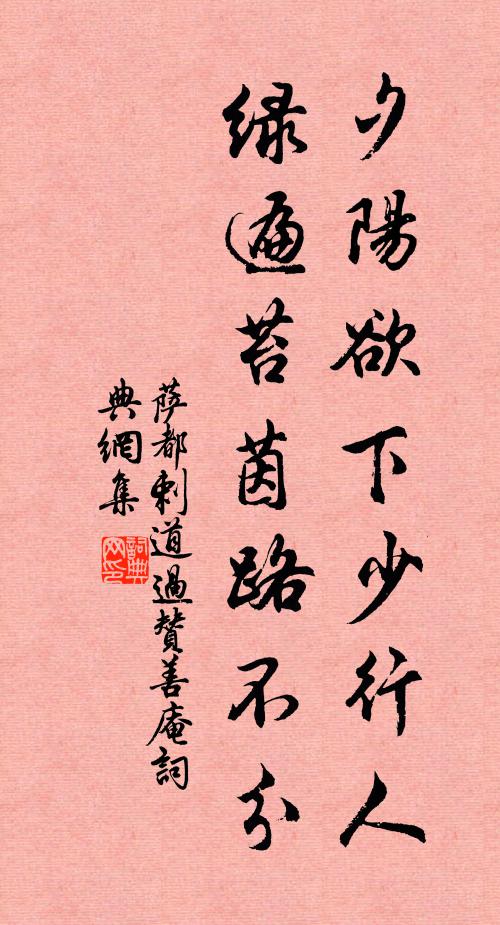 夕陽欲下少行人
綠遍苔茵路不分
薩都剌道過贊善庵詞
典網集
詞典網印